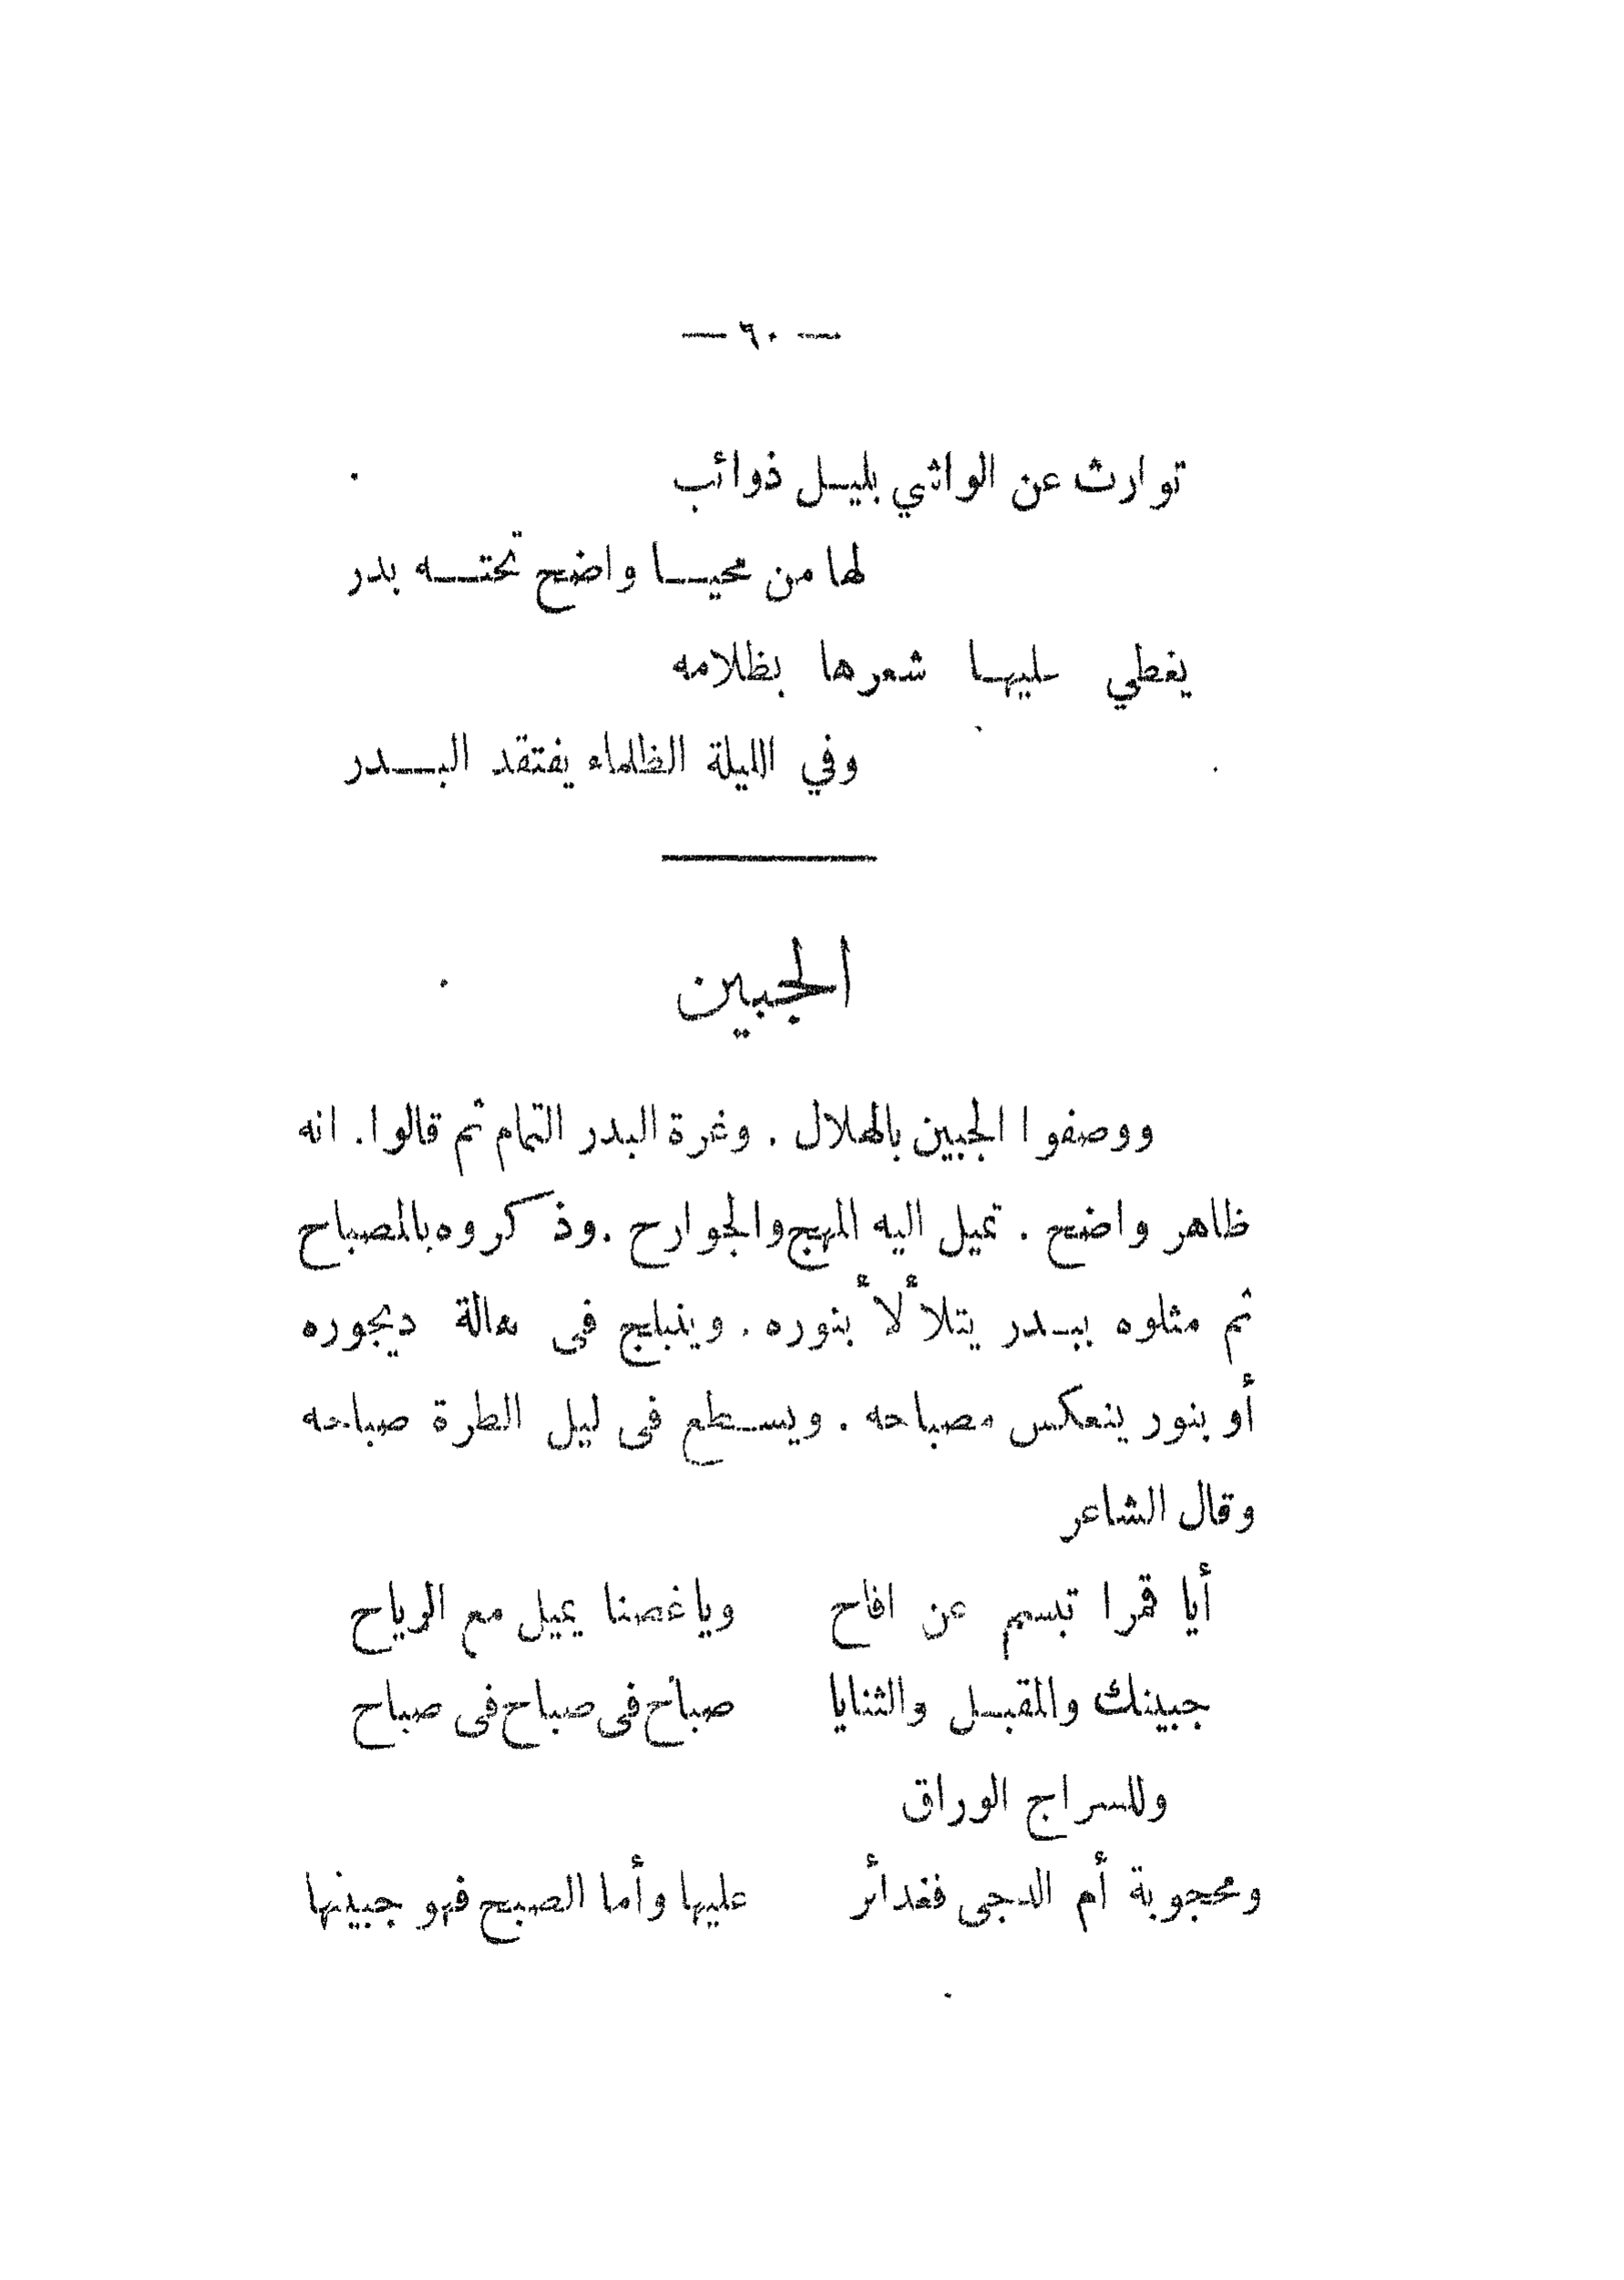 — ٦٠ —
توارث عن الواثي بليل ذوائب
لها من محيا واضح تحته بدر
يغطي عليها شعرها بظلامه
وفي الليلة الظلماء يفتقد البدر
الجبين
ووصفوا الجبين بالهلال . وغرة البدر التمام ثم قالوا. انه
ظاهر واضح . تميل اليه المهج والجوارح .وذكروه بالمصباح
ثم مثلوه ببدر يتلألأ بنوره . وينبلج فى هالة ديجوره
أو بنور ينعكس مصباحه . ويسطع فى ليل الطرة صباحه
وقال الشاعر
أيا قمرا تبسم عن اقاح وياغصنا يميل مع الرياح
جبينك والمقبل والثنايا صباح فى صباح فى صباح
وللسراج الوراق
ومحجوبة أم الدجى فغدائر عليها وأما الصبح فهو جبينها